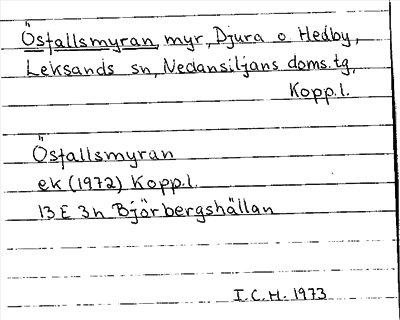 Östallsmyran, myr, Djura o Hedby,
Leksands sn, Nedansiljans doms.tg,
Kopp.l.
Östallsmyran
ek (1972) Kopp.l.
13 E 3h Björbergshällan
I.C.H. 1973